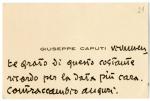 21
GIUSEPPE CAPUTI vivamen
te grato di questo costante
ricordo per la data più cara.
Contraccambio auguri.